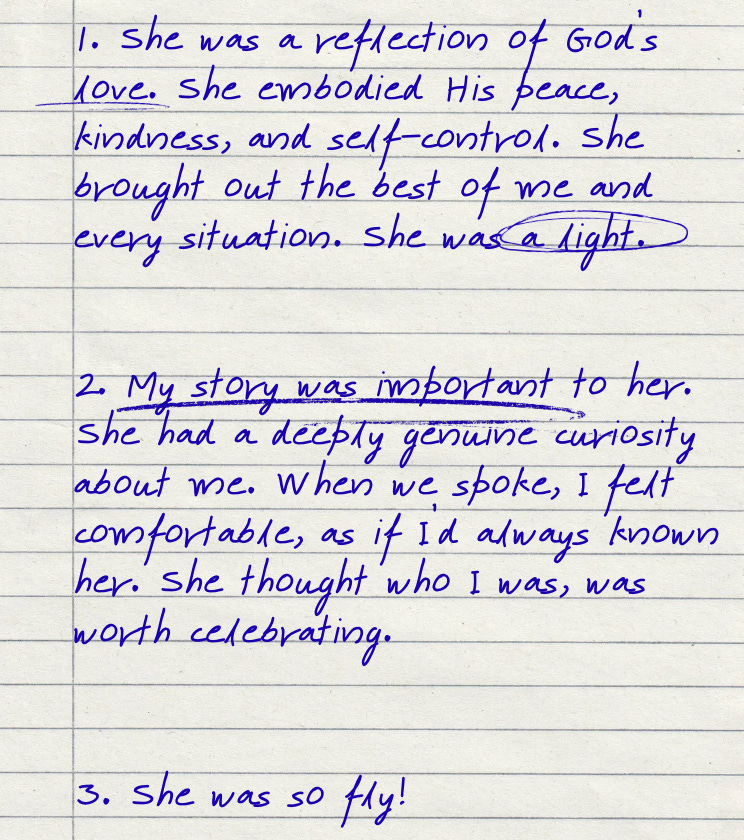 1. She was a reflection of God's
love. She embodied His peace,
kindness, and self-control. She
brought out the best of me and
every situation. She was a light.
2. My story was important to her.
She had a deeply genuine curiosity
about me. When we spoke, I felt
comfortable, as if I'd always known
her. She thought who I was, was
worth celebrating.
3. She was so fly!